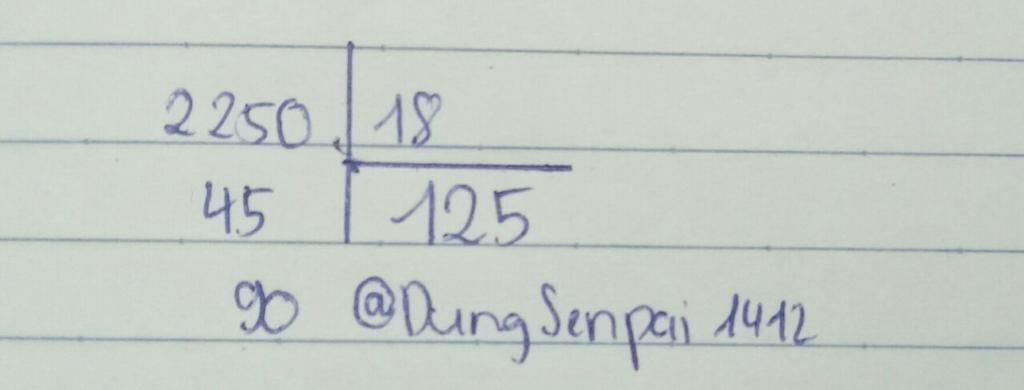 2250 18
45 125
90 @DungSenpai1412